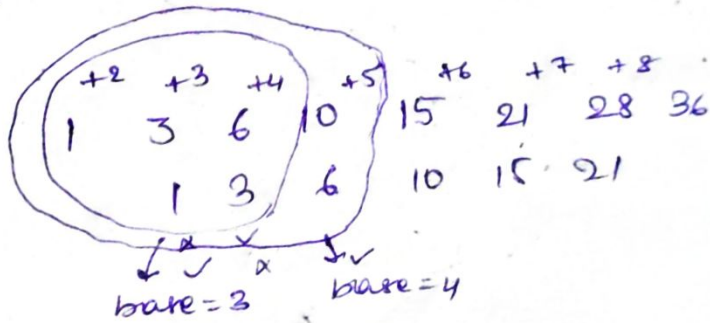 +2 +3 +4 +5 +6 +7 +8
1 3 6 10 15 21 28 36
1 3 6 10 15 21
x ✓ ✓
✓ x
base=3 base=4